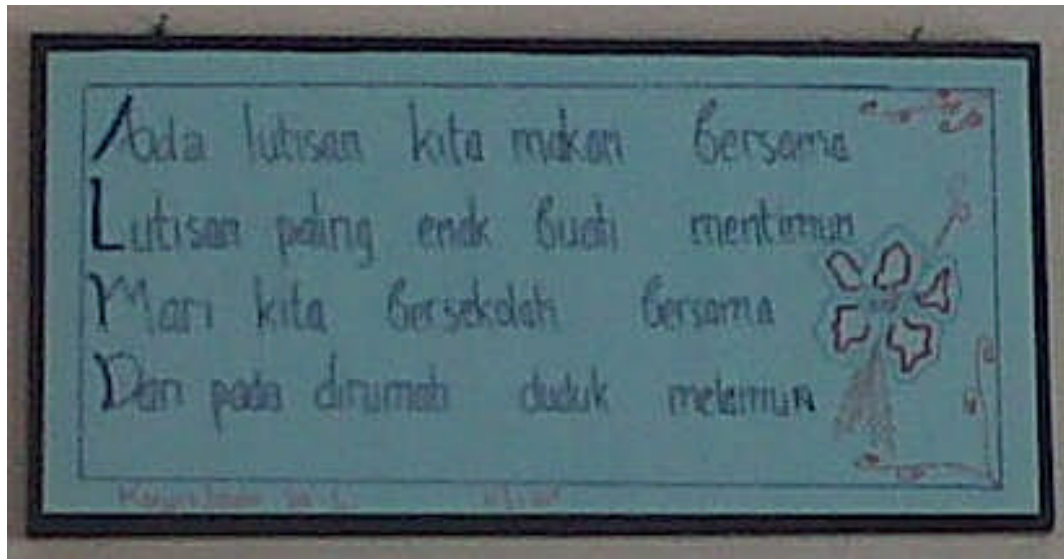 Ada lutisan kita makan Bersama
Lutisan paling enak Buah mentimun
Mari kita Bersekolah Bersama
Dari pada dirumah duduk melamun